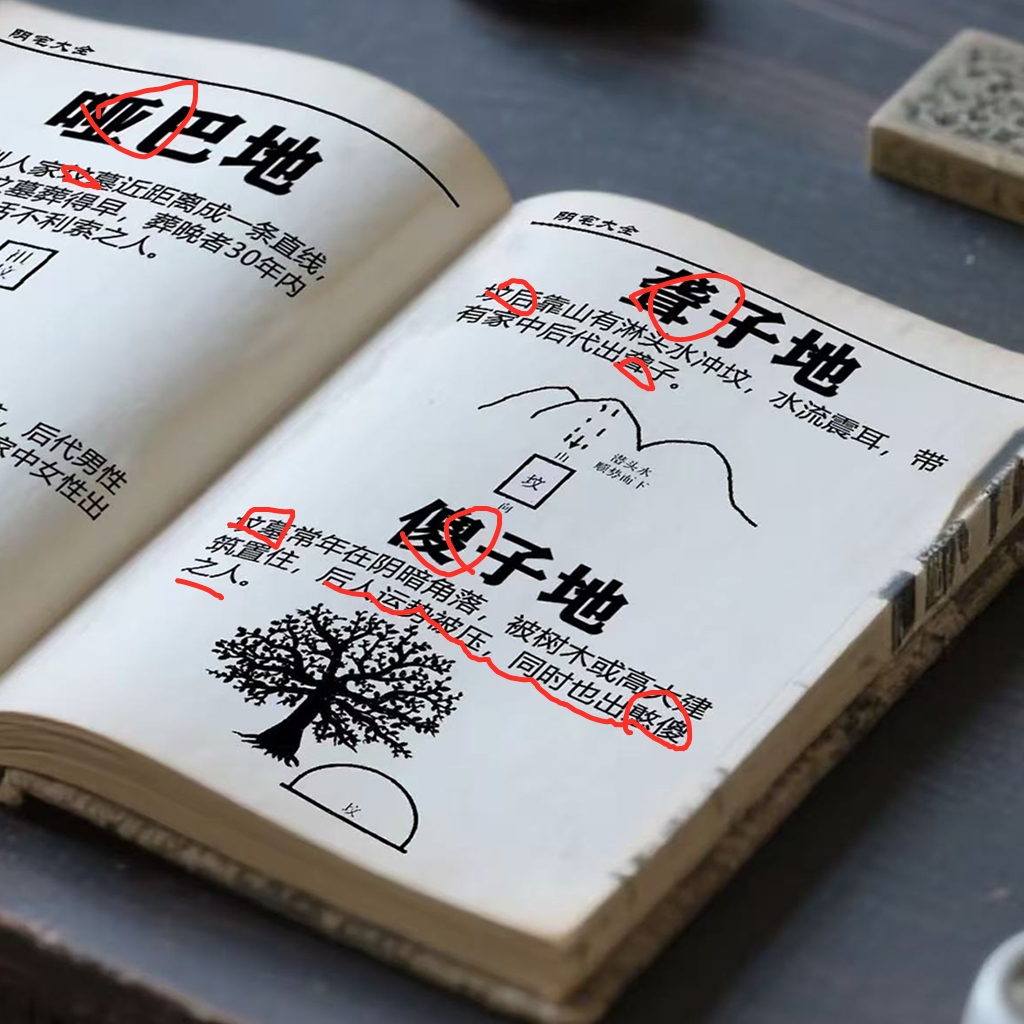 阴宅大全
哑巴地
人家坟墓近距离成一条直线,
坟墓葬得早,葬晚者30年内
不利索之人。
山
坟
后代男性
家中女性出
阴宅大全
聋子地
坟后靠山有淋头水冲坟,水流震耳,带
有家中后代出聋子。
山
坟
向
淋头水
顺势而下
傻子地
坟墓常年在阴暗角落,被树木或高大建
筑置住,后人运势被压,同时也出憨傻
之人。
坟